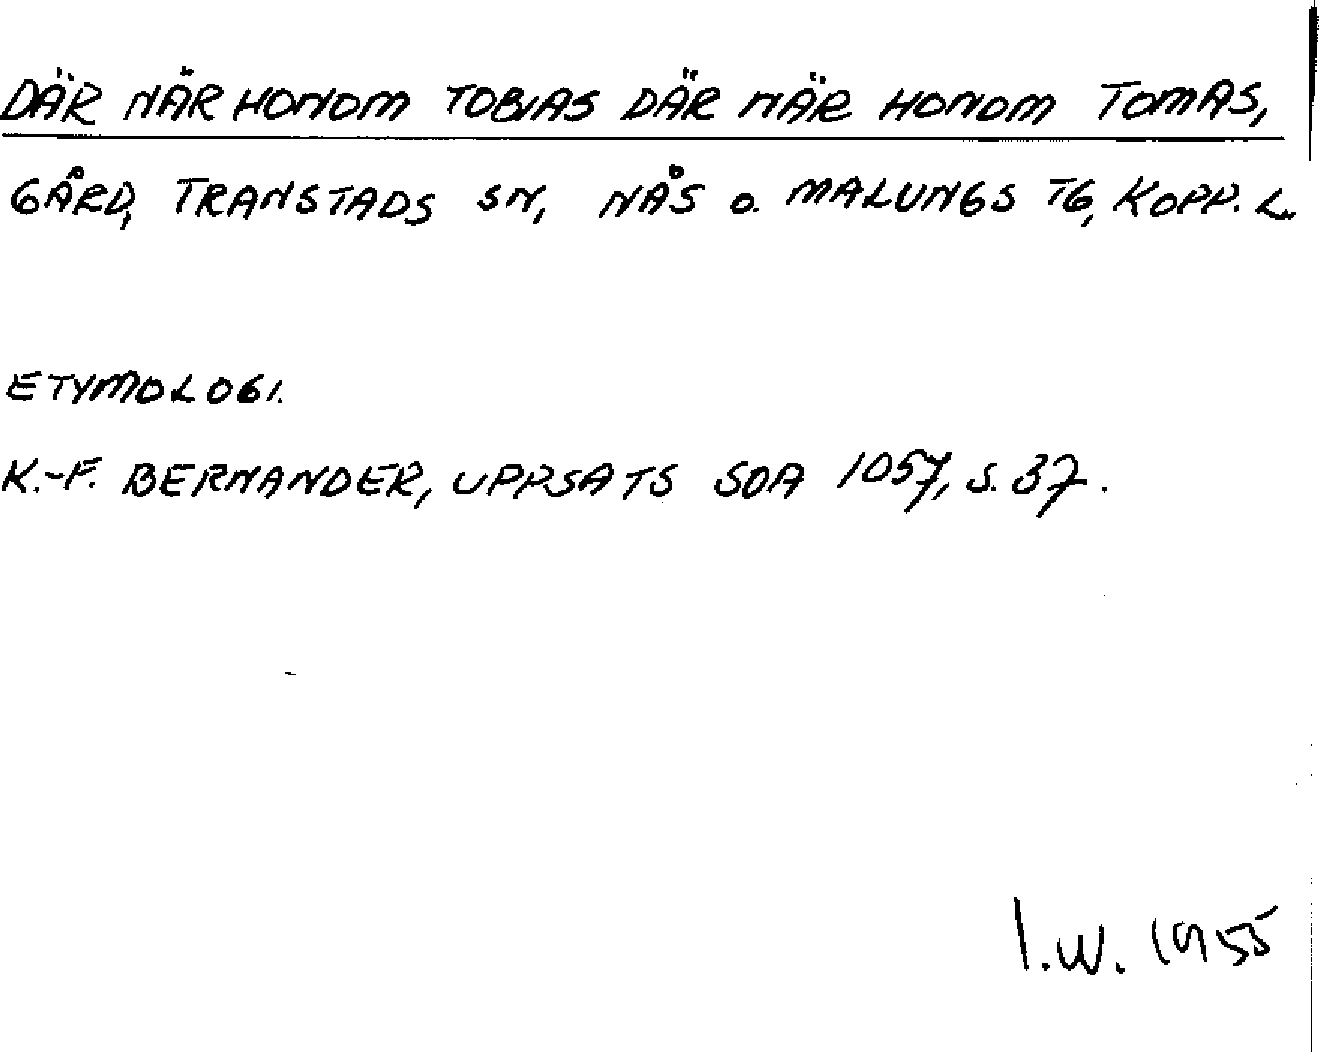 DÄR NÄR HONOM TOBIAS DÄR NÄR HONOM TOMAS,
GÅRD, TRANSTADS SN, NÅS O. MALUNGS TG, KOPP. L.
ETYMOLOGI.
K.-F. BERNANDER, UPPSATS SOA 1057, S. 37.
I.W. 1955